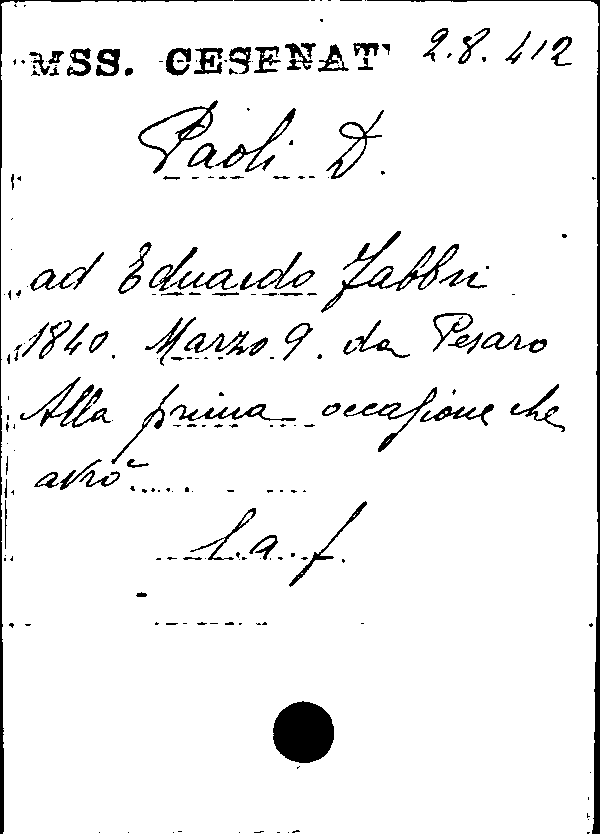 MSS. CESENAT 2.8.412
Paoli D.
ad Eduardo Fabbri
1840. Marzo 9. da Pesaro
Alla prima occasione che
avrò
L.a.f.